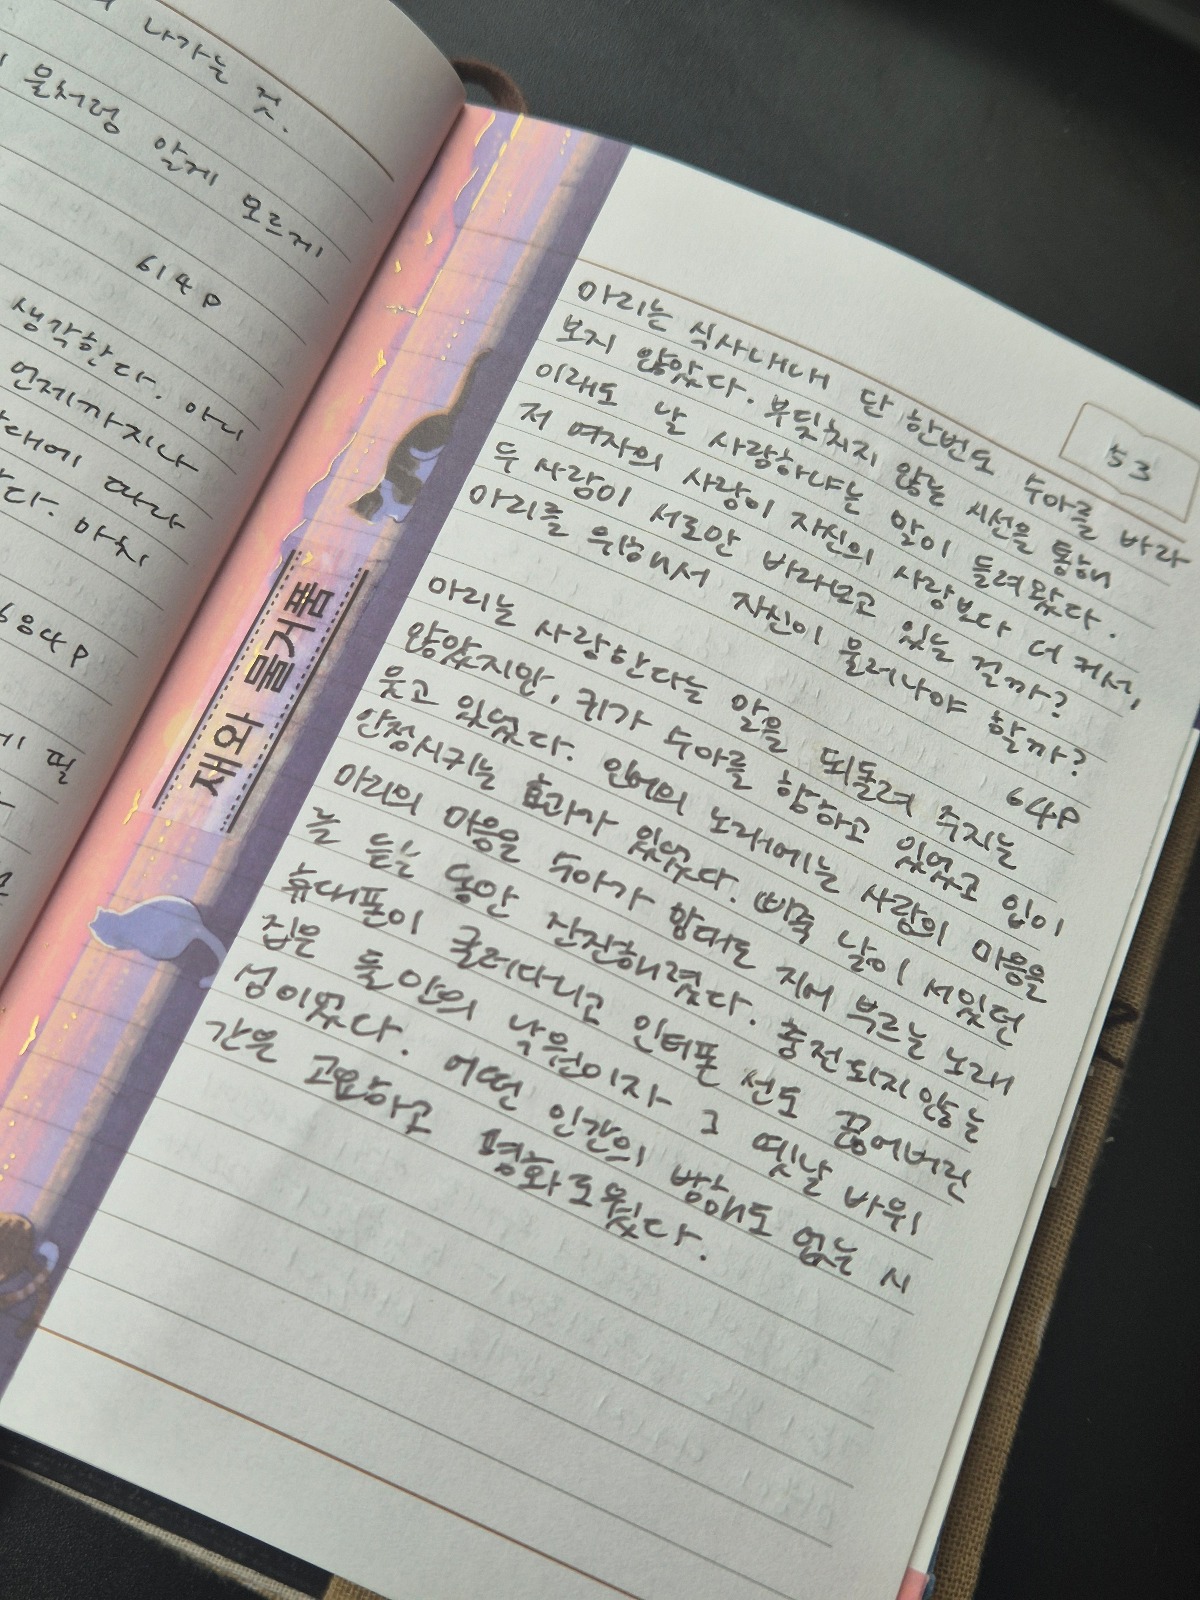 나가는 것.
물처럼 알게 모르게
614p
생각한다. 아니
언제까지나
따라
마치
684p
필
재와 물거품
53
마리는 식사내내 단 한번도 수아를 바라
보지 않았다. 부딪치지 않는 시선을 통해
이래도 날 사랑하냐는 말이 들려왔다.
저 여자의 사랑이 자신의 사랑보다 더 커서,
두 사람이 서로만 바라보고 있는 걸까?
마리를 위해서 자신이 물러나야 할까?
64p
마리는 사랑한다는 말을 되돌려 주지는
않았지만, 귀가 수아를 향하고 있었고 입이
웃고 있었다. 인어의 노래에는 사람의 마음을
안정시키는 효과가 있었다. 삐쭉 날이 서있던
마리의 마음은 수아가 향대도 지어 부르는 노래
를 듣는 동안 잔잔해졌다. 충전되지 않는
휴대폰이 굴러다니고 인터폰 선도 끊어버린
집은 둘 만의 낙원이자 그 옛날 바위
섬이었다. 어떤 인간의 방해도 없는 시
간은 고요하고 평화로웠다.